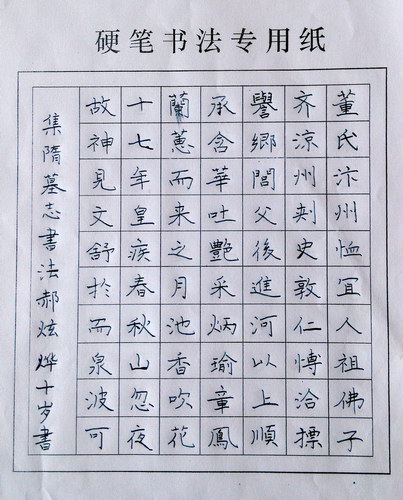 硬笔书法专用纸
董氏汴州恤宜人祖佛子
齐凉州刺史敦仁愽洽摽
譽鄉閭父後進河以上順
承含華吐艷采炳瑜章鳳
蘭蕙而来之月池香吹花
十七年皇疾春秋山忽夜
故神見文舒扵而泉波可
集隋墓志書法郝炫烨十岁書